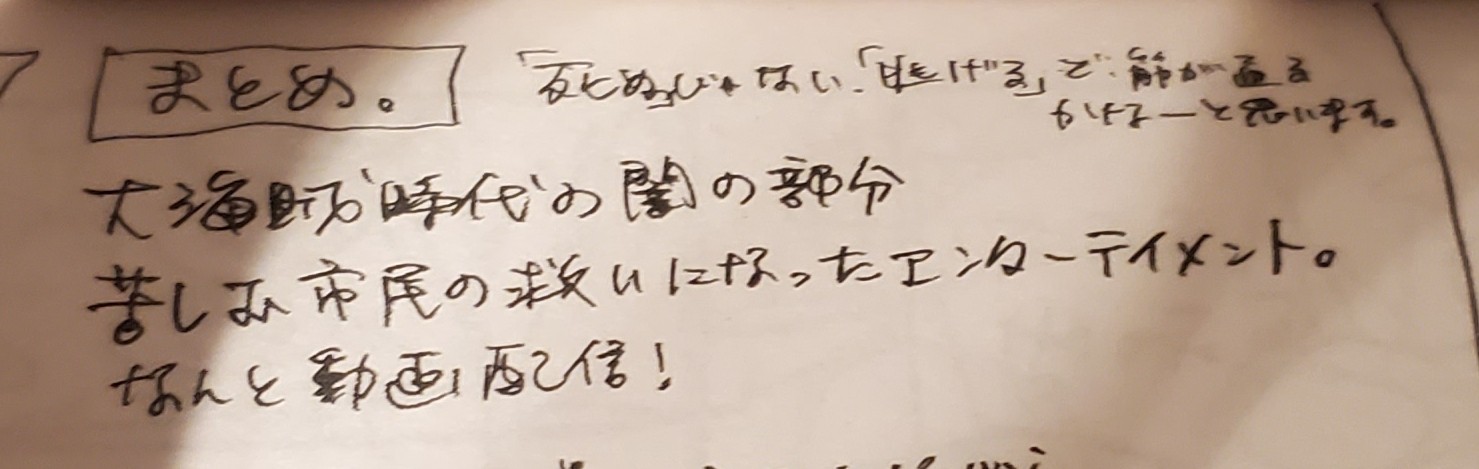 まとめ。
「死ぬ」じゃない、「げる」で、筋が通る
かなーと思います。
大海賊時代の闇の部分
苦しむ市民の救いになったエンターテイメント。
なんと動画配信！